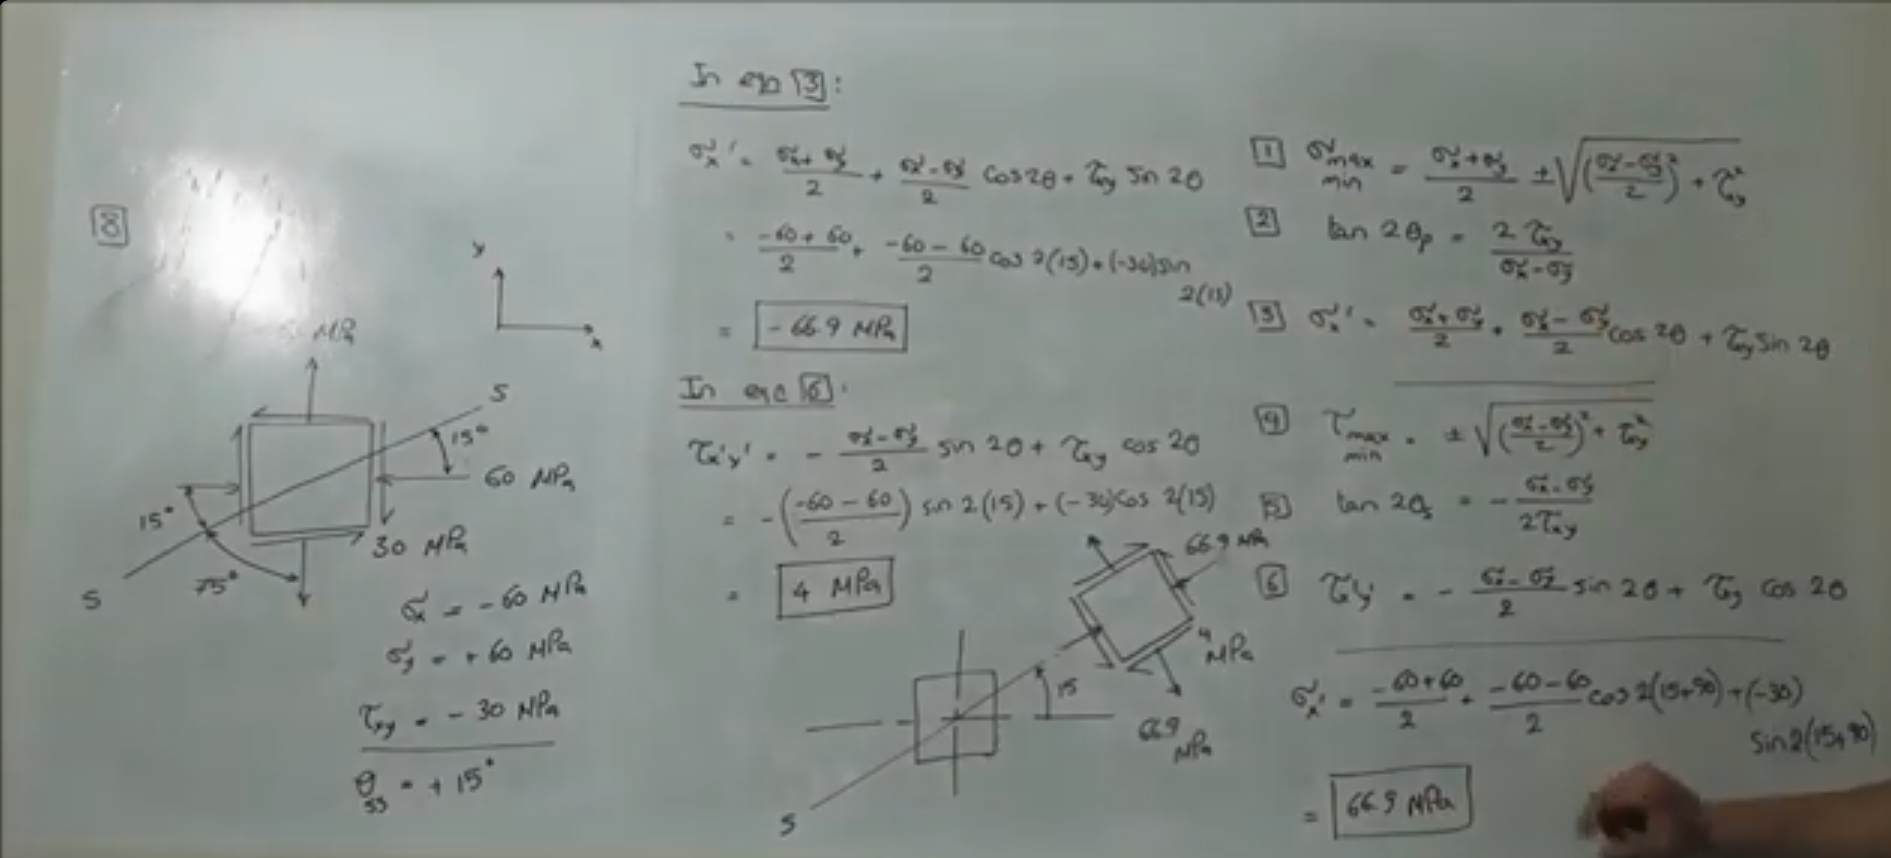 8
MPa
y
x
S
15°
60 MPa
15°
30 MPa
75°
S
σx = -60 MPa
σy = +60 MPa
τxy = -30 MPa
θss = +15°
In eqn 3:
σx' = (σx + σy)/2 + (σx - σy)/2 cos 2θ + τxy sin 2θ
= (-60 + 60)/2 + (-60 - 60)/2 cos 2(15) + (-30) sin 2(15)
= -66.9 MPa
In eqn 6:
τx'y' = - (σx - σy)/2 sin 2θ + τxy cos 2θ
= -((-60 - 60)/2) sin 2(15) + (-30) cos 2(15)
= 4 MPa
66.9 MPa
4 MPa
15
66.9 MPa
S
1 σmax min = (σx + σy)/2 ± √(((σx - σy)/2)² + τxy²)
2 tan 2θp = 2τxy/(σx - σy)
3 σx' = (σx + σy)/2 + (σx - σy)/2 cos 2θ + τxy sin 2θ
4 τmax min = ± √(((σx - σy)/2)² + τxy²)
5 tan 2θs = - (σx - σy)/2τxy
6 τx'y' = - (σx - σy)/2 sin 2θ + τxy cos 2θ
σx' = (-60 + 60)/2 + (-60 - 60)/2 cos 2(15+90) + (-30) sin 2(15+90)
= 66.9 MPa